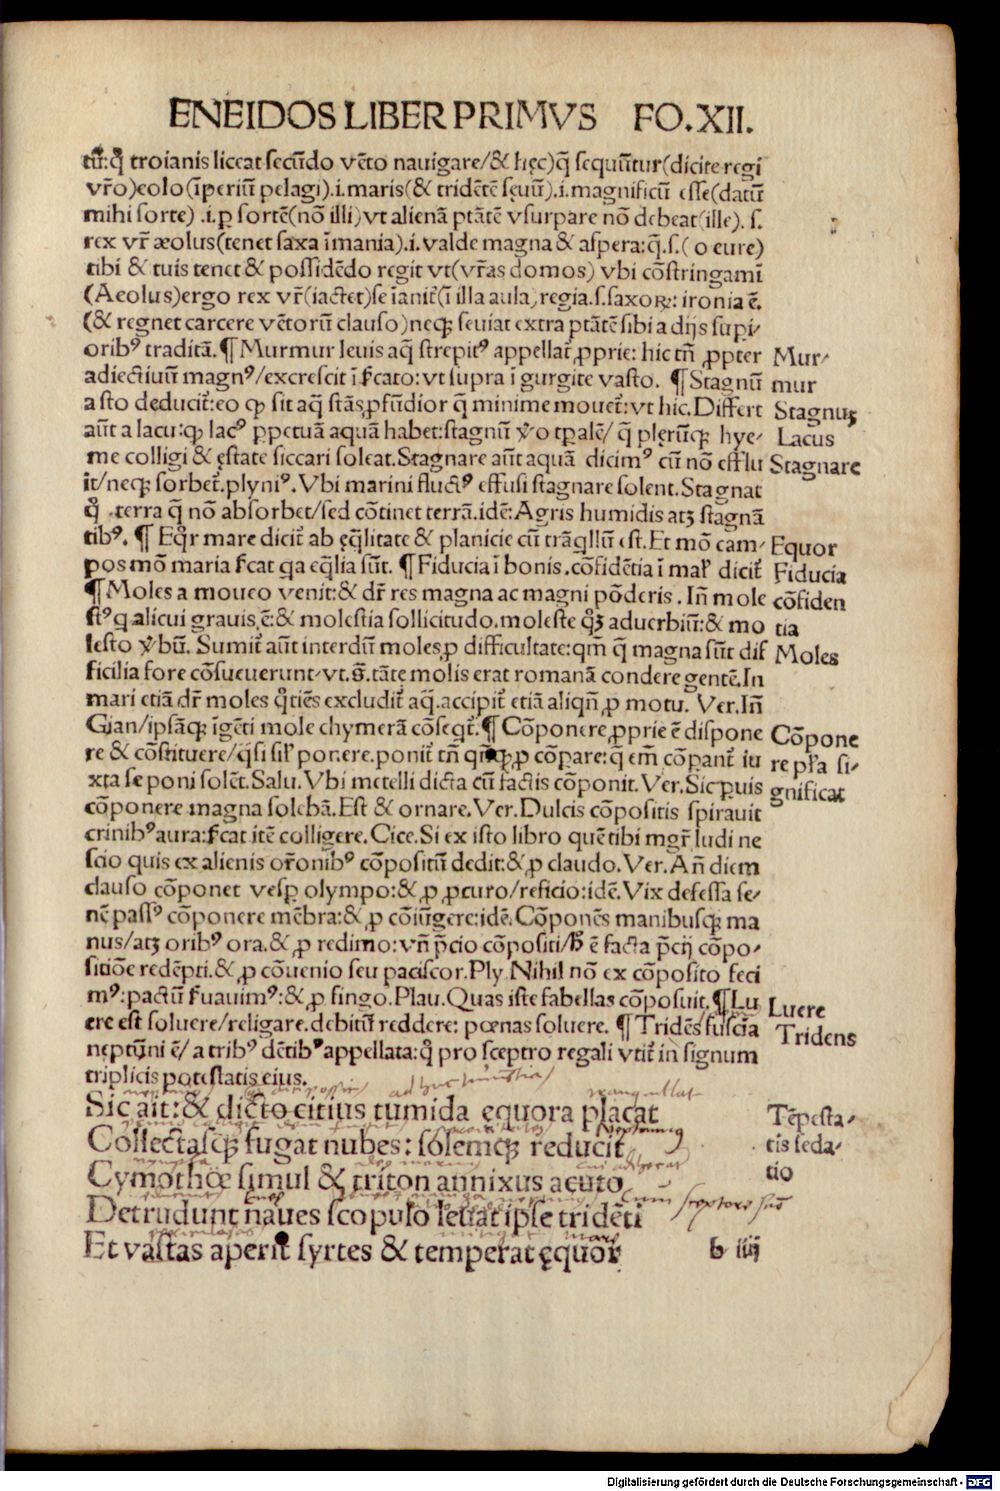 ENEIDOS LIBER PRIMVS FO.XII.
tur̃:q̃ troianis liceat secũdo vẽto nauigare/& hęc)q̃ sequũtur(dicite regi
vr̃o)eolo(ĩperiũ pelagi).i.maris(& tridẽtẽ sęuũ).i.magnificũ esse(datũ
mihi sorte) .i.ꝑ sortẽ(nõ illi)vt alienã ptãtẽ vsurpare nõ debeat(ille). s.
rex vr̃ æolus(tenet saxa ĩmania).i.valde magna & aspera:q̃.s.( o eure)
tibi & tuis tenet & possidẽdo regit vt(vr̃as domos) vbi cõstringamĩ
(Aeolus)ergo rex vr̃(iactet)se ĩanit̃(ĩ illa aula)regia.s.saxoꝝ: ironia ẽ.
(& regnet carcere vẽtorũ clauso)neqꝫ seuiat extra ptãtẽ sibi a dijs supi-
oribꝰ traditã.¶ Murmur leuis aq̃ strepitꝰ appellat̃ ꝓprie: hic tñ ꝓpter
adiectiuũ magnꝰ/excrescit ĩ s̃cato:vt supra ĩ gurgite vasto. ¶ Stagnũ
a sto deducit̃:eo ꝙ sit aq̃ stãs ꝓfũdior q̃ minime mouet̃:vt hic.Differt
aũt a lacu:ꝙ lacꝰ ꝑpetuã aquã habet:stagnũ v̊o tꝑalẽ/ q̃ plęrũqꝫ hye-
me colligi & ęstate siccari soleat.Stagnare aũt aquã dicimꝰ cũ nõ efflu
it/neqꝫ sorbet̃.plyniꝰ.Vbi marini fluctꝰ effusi stagnare solent.Stagnat
q̊ terra q̃ nõ absorbet/sed cõtinet terrã.idẽ:Agris humidis atqꝫ stagnã
tibꝰ. ¶ Eq̊r mare dicit̃ ab ęq̃litate & planicie cũ trãq̃llũ est.Et mõ cam-
pos mõ maria s̃cat qa eq̃lia sũt. ¶ Fiducia ĩ bonis.cõfidẽtia ĩ mal̃ dicit̃
¶ Moles a moueo venit:& dr̃ res magna ac magni põderis . Iñ mole
stꝰ q alicui grauis ẽ:& molestia sollicitudo.moleste q̊qꝫ aduerbiũ:& mo
lesto v̊bũ. Sumit̃ aũt interdũ moles ꝓ difficultate:qm̃ q̃ magna sũt dif
ficilia fore cõsueuerunt.vt.s̃.tãte molis erat romanã condere gentẽ.In
mari etiã dr̃ moles q̃tiẽs excludit̃ aq̃.accipit̃ etiã aliqñ ꝓ motu. Ver.Iñ
Gian/ipsãqꝫ ĩgẽti mole chymerã cõseqt̃.¶ Cõponere ꝓprie ẽ dispone
re & cõstituere/q̃si sil̃ ponere.ponit̃ tñ qñqꝫ ꝓ cõpare:q̃ em̃ cõpant̃ iu
xta se poni solẽt.Salu.Vbi metelli dicta cũ factis cõponit.Ver.Sic ꝑuis
cõponere magna solebã.Est & ornare.Ver.Dulcis cõpositis spirauit
crinibꝰ aura:s̃cat itẽ colligere.Cice.Si ex isto libro quẽ tibi mgr̃ ludi ne
scio quis ex alienis or̃onibꝰ cõpositũ dedit:& ꝓ claudo.Ver.Añ diem
clauso cõponet vesꝑ olympo:& ꝓ ꝓcuro/reficio:idẽ.Vix defessa se-
nẽ passꝰ cõponere mẽbra:& ꝓ cõiũgere:idẽ.Cõponẽs manibusqꝫ ma
nus/atqꝫ oribꝰ ora.& ꝓ redimo:vñ p̃cio cõpositi/h̃ ẽ facta p̃cij cõpo-
sitiõe redẽpti.& ꝓ cõuenio seu paciscor.Ply.Nihil nõ ex cõposito feci
mꝰ:pactũ s̃uauimꝰ:& ꝓ fingo.Plau.Quas iste fabellas cõposuit.¶ Lu
ere est soluere/religare.debitũ reddere: pœnas soluere. ¶ Tridẽs fuscĩa
neptũni ẽ/ a tribꝰ dẽtibꝰ appellata:q̊ pro sceptro regali vtit̃ in signum
triplicis potestatis eius.
Sic ait:& dicto citius tumida ęquora placat
Collectasqꝫ fugat nubes: solemqꝫ reducit
Cymothœ simul & triton annixus acuto
Detrudunt naues scopulo leuat ipse tridẽti
Et vastas aperit syrtes & temperat ęquor
b iiij
Mur-
mur
Stagnuꝫ
Lacus
Stagnare
Equor
Fiducia
cõfiden
tia
Moles
Cõpone
re pl̃a si-
gnificat
Luere
Tridens
Tẽpesta-
tis seda-
tio
Digitalisierung gefördert durch die Deutsche Forschungsgemeinschaft - DFG